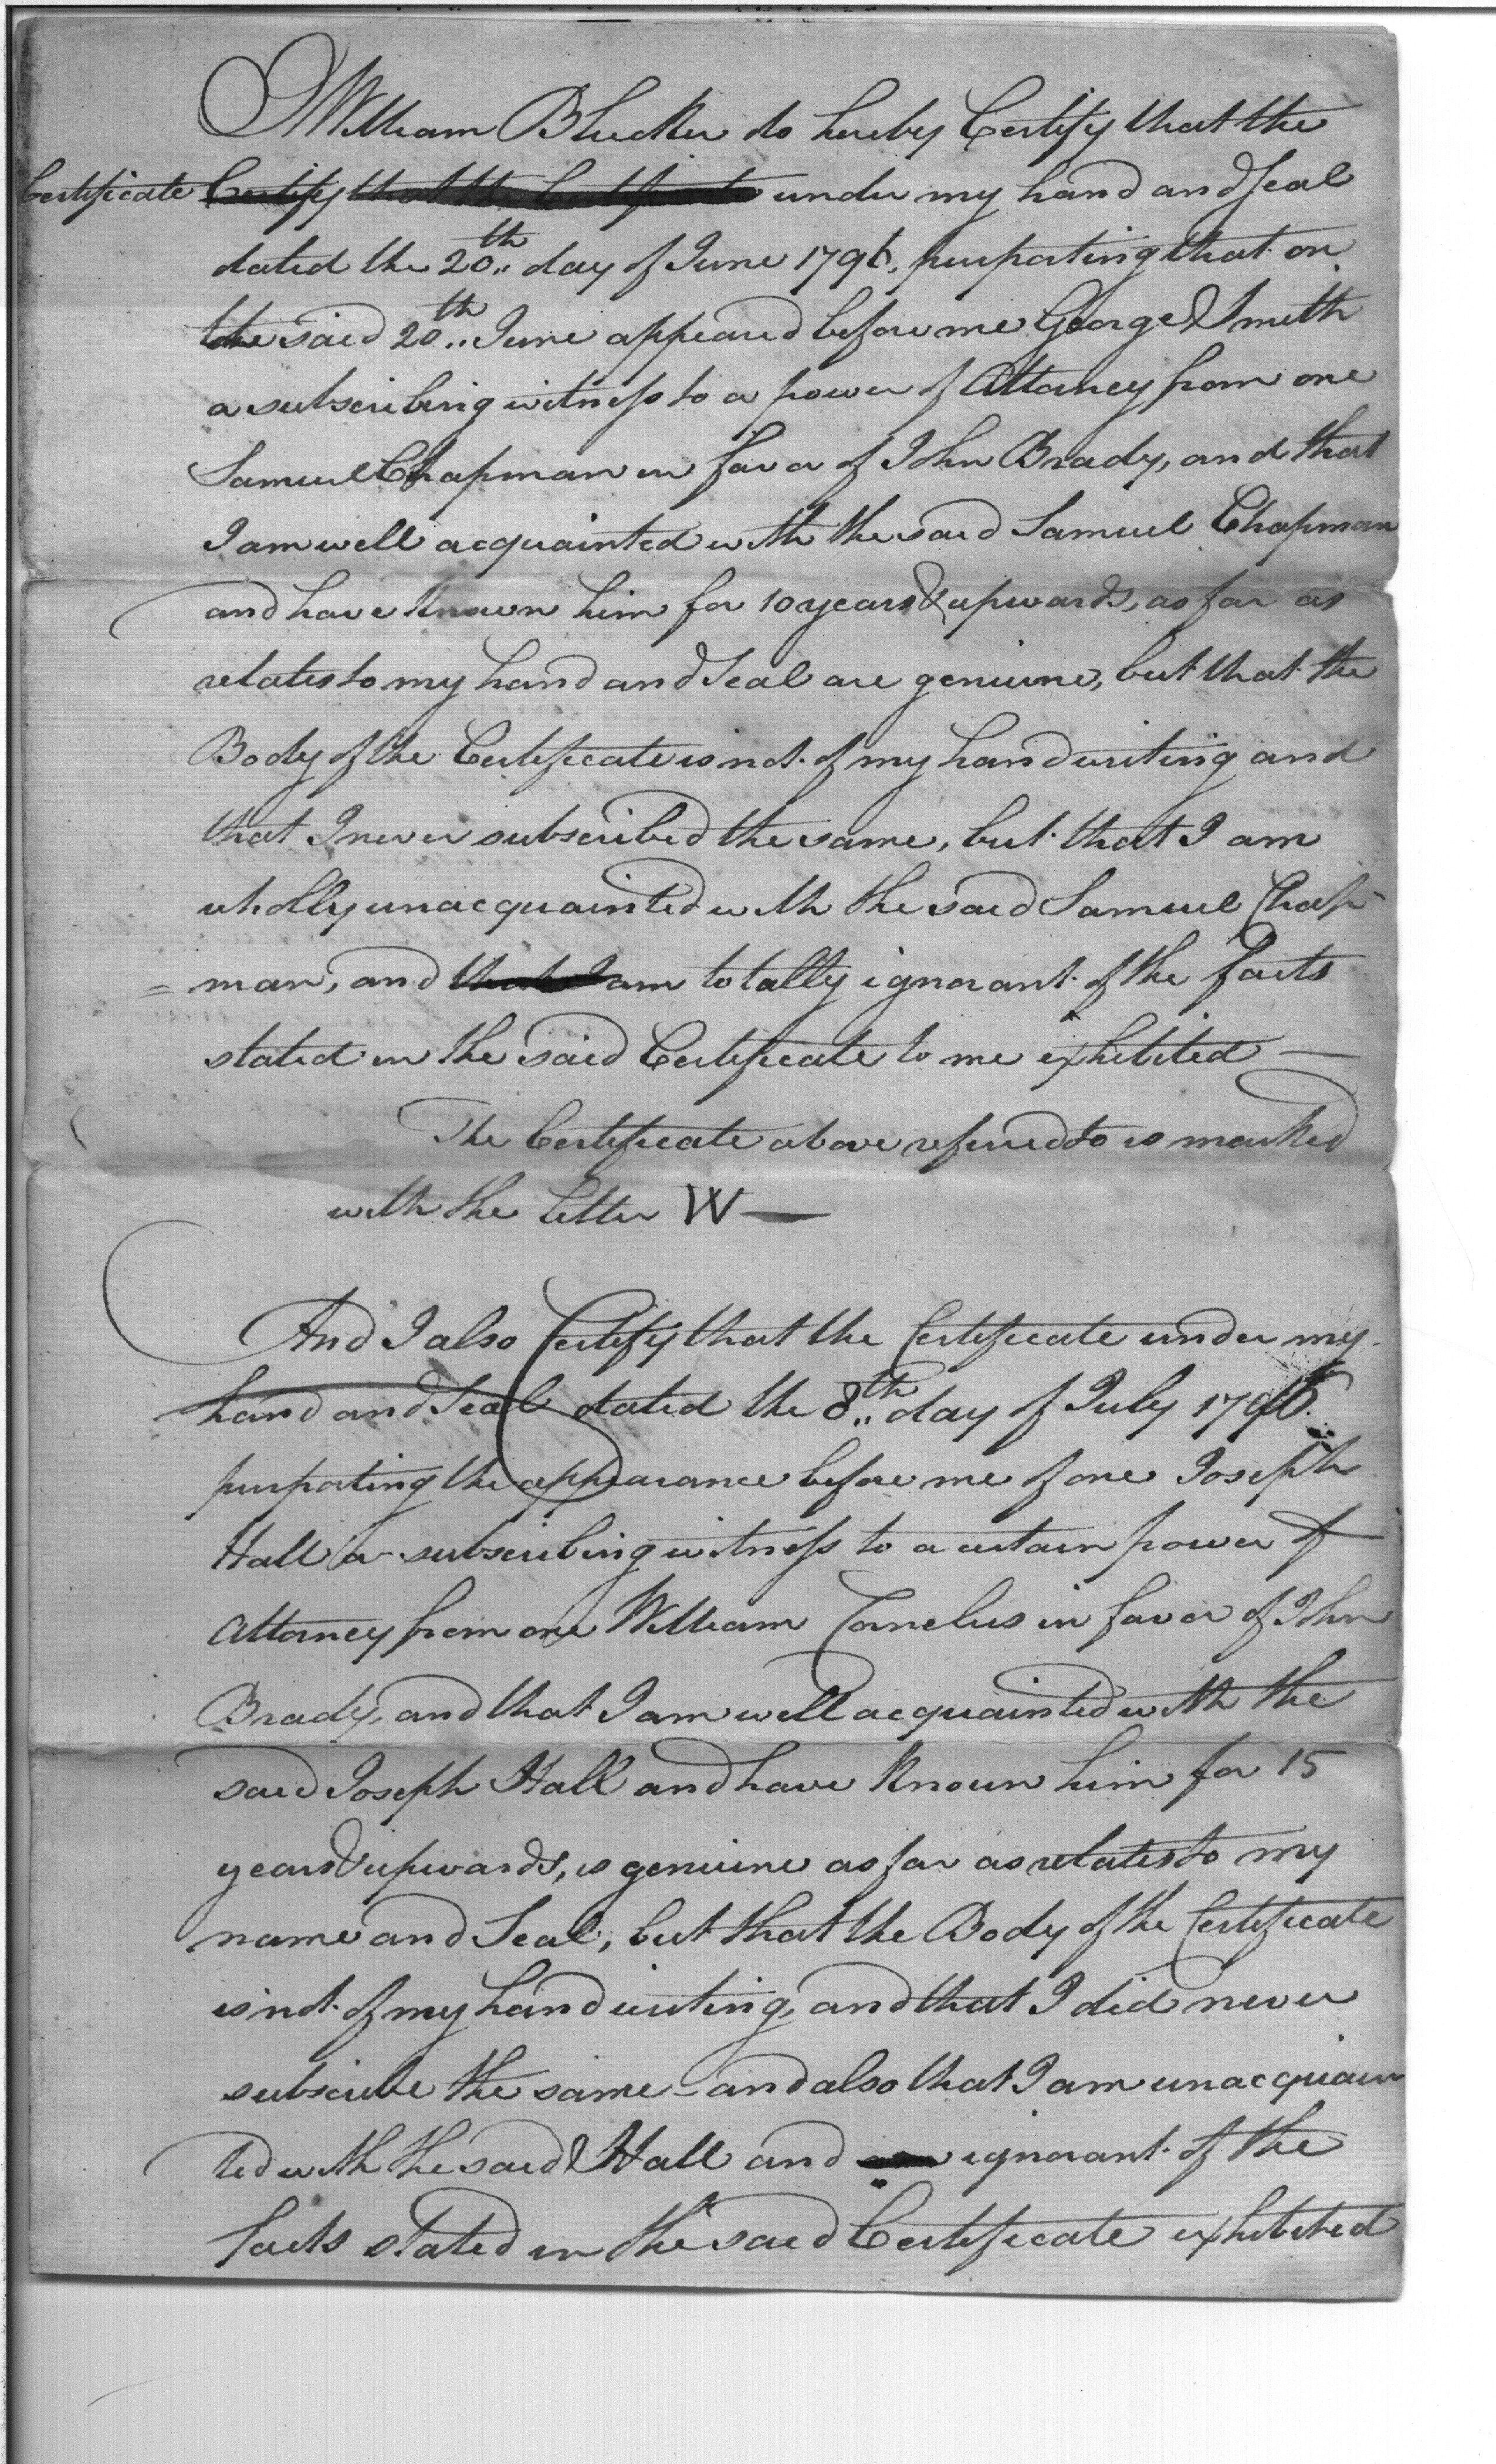 I William Blucker do hereby Certify that the
Certificate Certify that the Certificate under my hand and Seal
dated the 20th.. day of June 1796, purporting that on
the said 20th.. June appeared before me George Smith
a subscribing witness to a power of Attorney from one
Samuel Chapman in favor of John Brady, and that
I am well acquainted with the said Samuel Chapman
and have Known him for 10 years & upwards, as far as
relates to my hand and Seal are genuine, but that the
Body of the Certificate is not of my hand writing and
that I never subscribed the same, but that I am
wholly unacquainted with the said Samuel Chap-
= man, and that I am totally ignorant of the facts
stated in the said Certificate to me exhibited —
The Certificate above refered to is marked
with the letter W —
And I also Certify that the Certificate under my
hand and Seal dated the 8th.. day of July 1796.
purporting the appearance before me of one Joseph
Hall a subscribing witness to a certain power of
Attorney from one William Cornelius in favor of John
Brady, and that I am well acquainted with the
said Joseph Hall and have Known him for 15
years & upwards, is genuine as far as relates to my
name and Seal, but that the Body of the Certificate
is not of my hand writing, and that I did never
subscribe the same - and also that I am unacquain
ted with the said Hall and ignorant of the
facts stated in the said Certificate exhibited